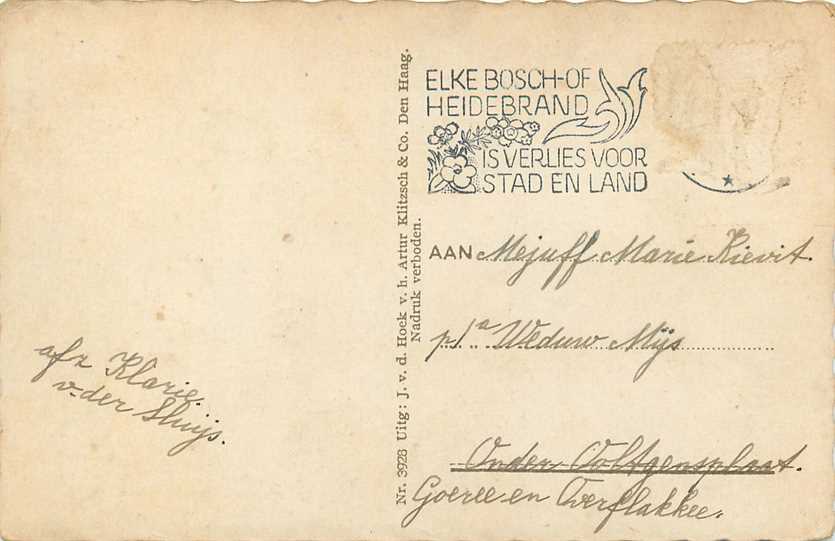 ELKE BOSCH-OF
HEIDEBRAND
IS VERLIES VOOR
STAD EN LAND
AAN Mejuff Marie Kievit.
p/a Weduw Mijs
Onder Ooltgensplaat.
Goeree en Overflakkee.
afz Klarie
v. der Sluijs.
Nr. 3928 Uitg: J. v. d. Hoek v. h. Artur Klitzsch & Co. Den Haag.
Nadruk verboden.